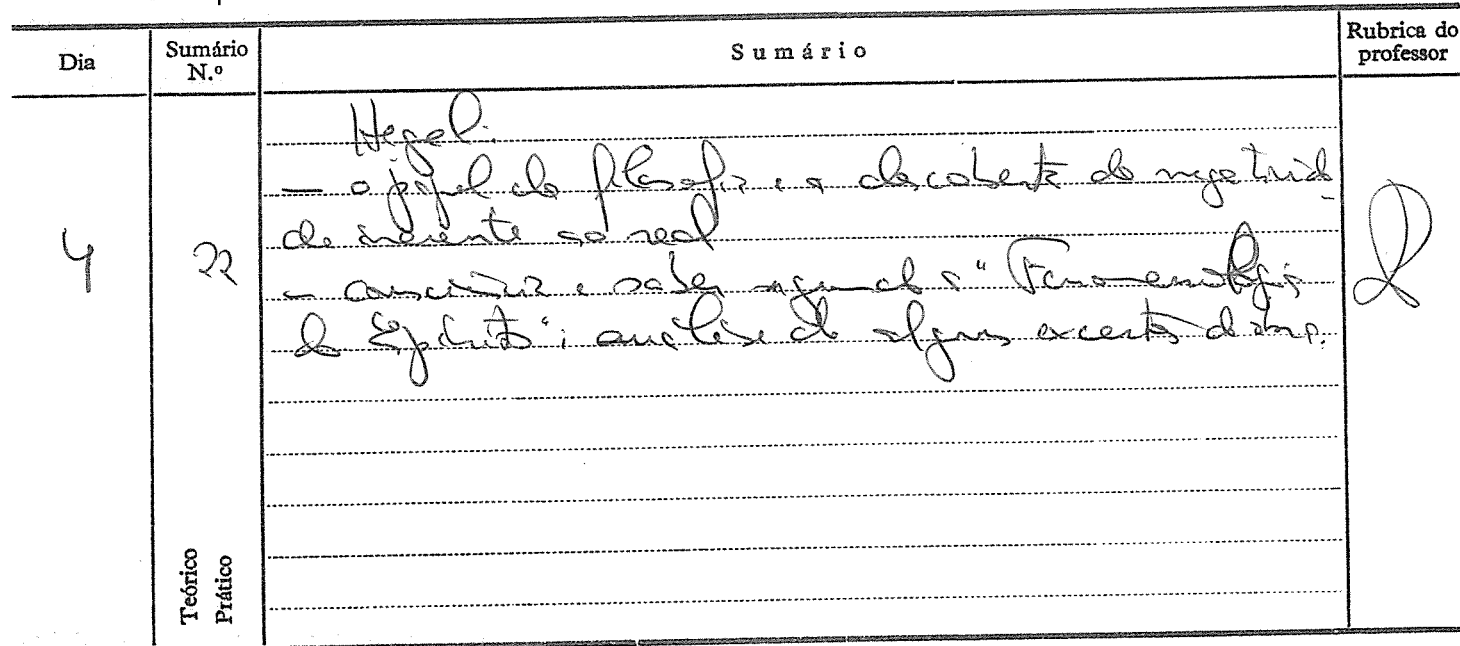 Dia
Sumário N.º
Sumário
Rubrica do professor
4
22
Hegel:
— o papel da filosofia e a descoberta da negativida-
de inerente ao real
— consciência e saber segundo a "Fenomenologia
do Espírito"; análise de alguns excertos da
Teórico
Prático